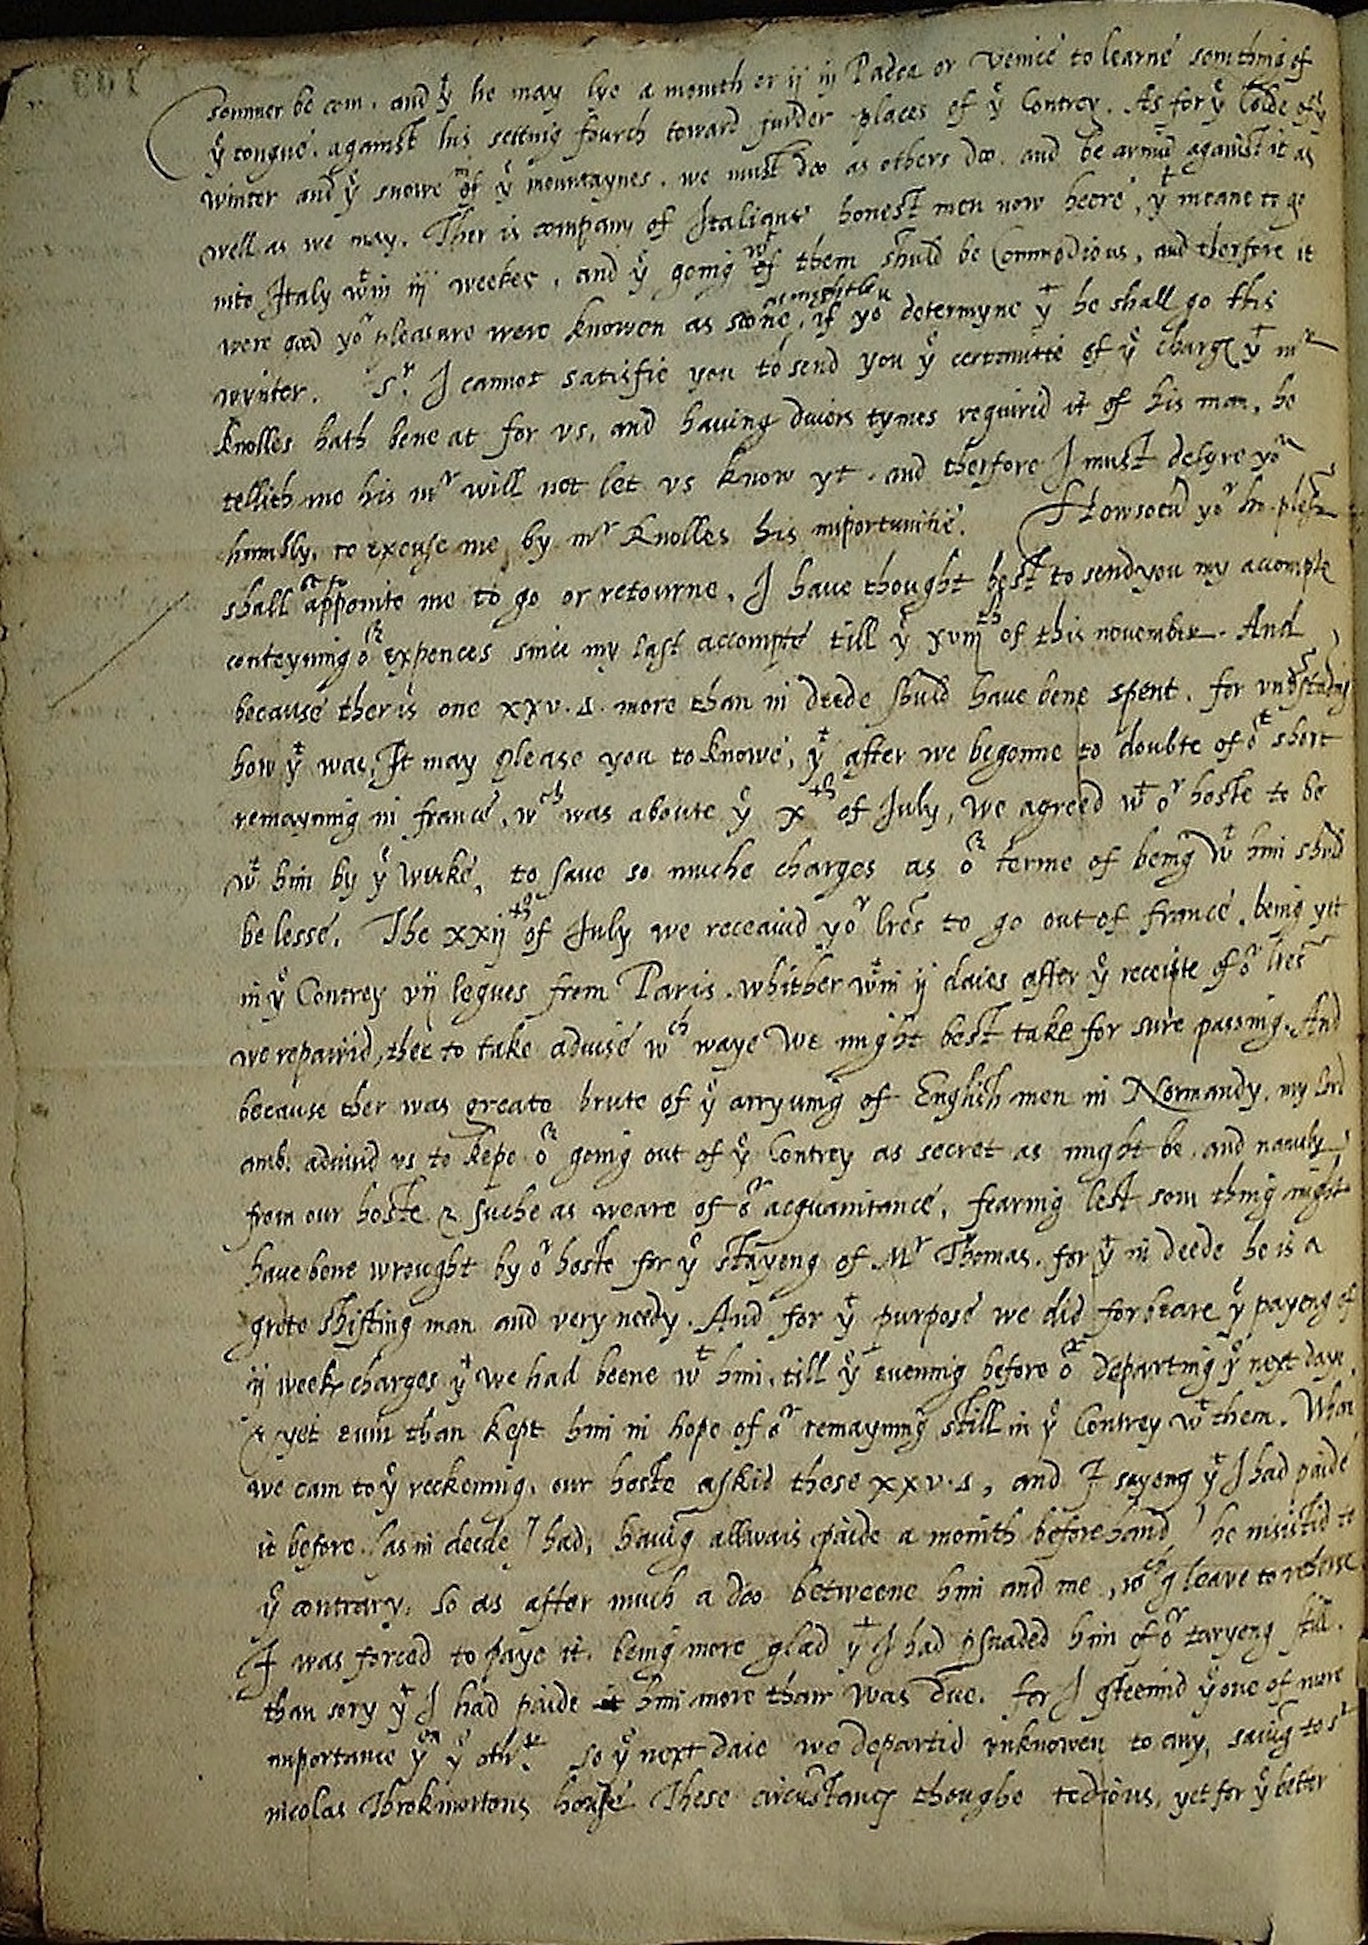 sommer be com. and yt he may lye a month or ij in Padea or Venice to learne somthing of
ye tongue. against his setting fourth toward furder places of ye Contrey. As for ye Colde of ye
winter and ye snowe in of ye mountaynes. we must doo as others doo. and be armid against it as
well as we may. Ther is company of Italians honest men now heere, yt meane to go
into Italy wtin iij weekes, and ye going wt of them shuld be Commodious, and therfore it
were good yor pleasure were knowen as soone, as might be if you determyne yt he shall go this
wynter. Sr. I cannot satisfie you to send you ye certaintie of ye charges yt mr
Knolles hath bene at for vs, and having divers tymes requirid it of his man, he
tellith me his mr will not let vs know yt. and therfore I must desyre yor
humbly, to excuse me, by mr Knolles his importunitie. Howsoevr yor ho. plesr
shall appointe me to go or retourne, I have thought best to send you my accompte
conteyning or expences since my last accompte till ye xviijth of this november. And
because ther is one xxv. s. more than in deede shuld have bene spent. for undrstading
how yt was, It may please you to knowe, yt after we begonne to doubte of or short
remayning in france, wch was aboute ye xth of July, we agreed wt or hoste to be
wt him by ye weke, to save so muche charges as or terme of being wt him shuld
be lesse. The xxijth of July we receavid yor lres to go out of france. being yet
in ye Contrey vij legues from Paris. whither wtin ij daies after ye receipte of or lres
we repairid, ther to take advise wch waye we might best take for sure passing. And
because ther was greate brute of ye arryving of English men in Normandy. my lord
amb. advisid vs to kepe or going out of ye Contrey as secret as might be. and namely
from our hoste & suche as weare of or acquaintance, fearing lest som thing might
have bene wrought by or hoste for ye stayeng of Mr Thomas. for yt in deede he is a
grete shifting man and very needy. And for yt purpose we did forbeare ye payeng of
ij weekes charges yt we had beene wt him, till ye evening before or departing ye next daye,
& yet evin than kept him in hope of or remayning still in ye Contrey wt them. Whan
we cam to ye reckening, our hoste askid those xxv. s, and I sayeng yt I had paide
it before (as in deede I had, having allwais paide a month beforehand) he insistid to
ye contrary. So as after much a doo betweene him and me, wch I leave to reherse
I was forced to paye it. being more glad yt I had psuaded him of or taryeng still.
than sory yt I had paide it him more than was due. for I esteemid ye one of more
importance yen ye othr. So ye next daie we departid unknowen to any, saving to sr
nicolas Throkmortons house. These circustances thoughe tedious, yet for ye better